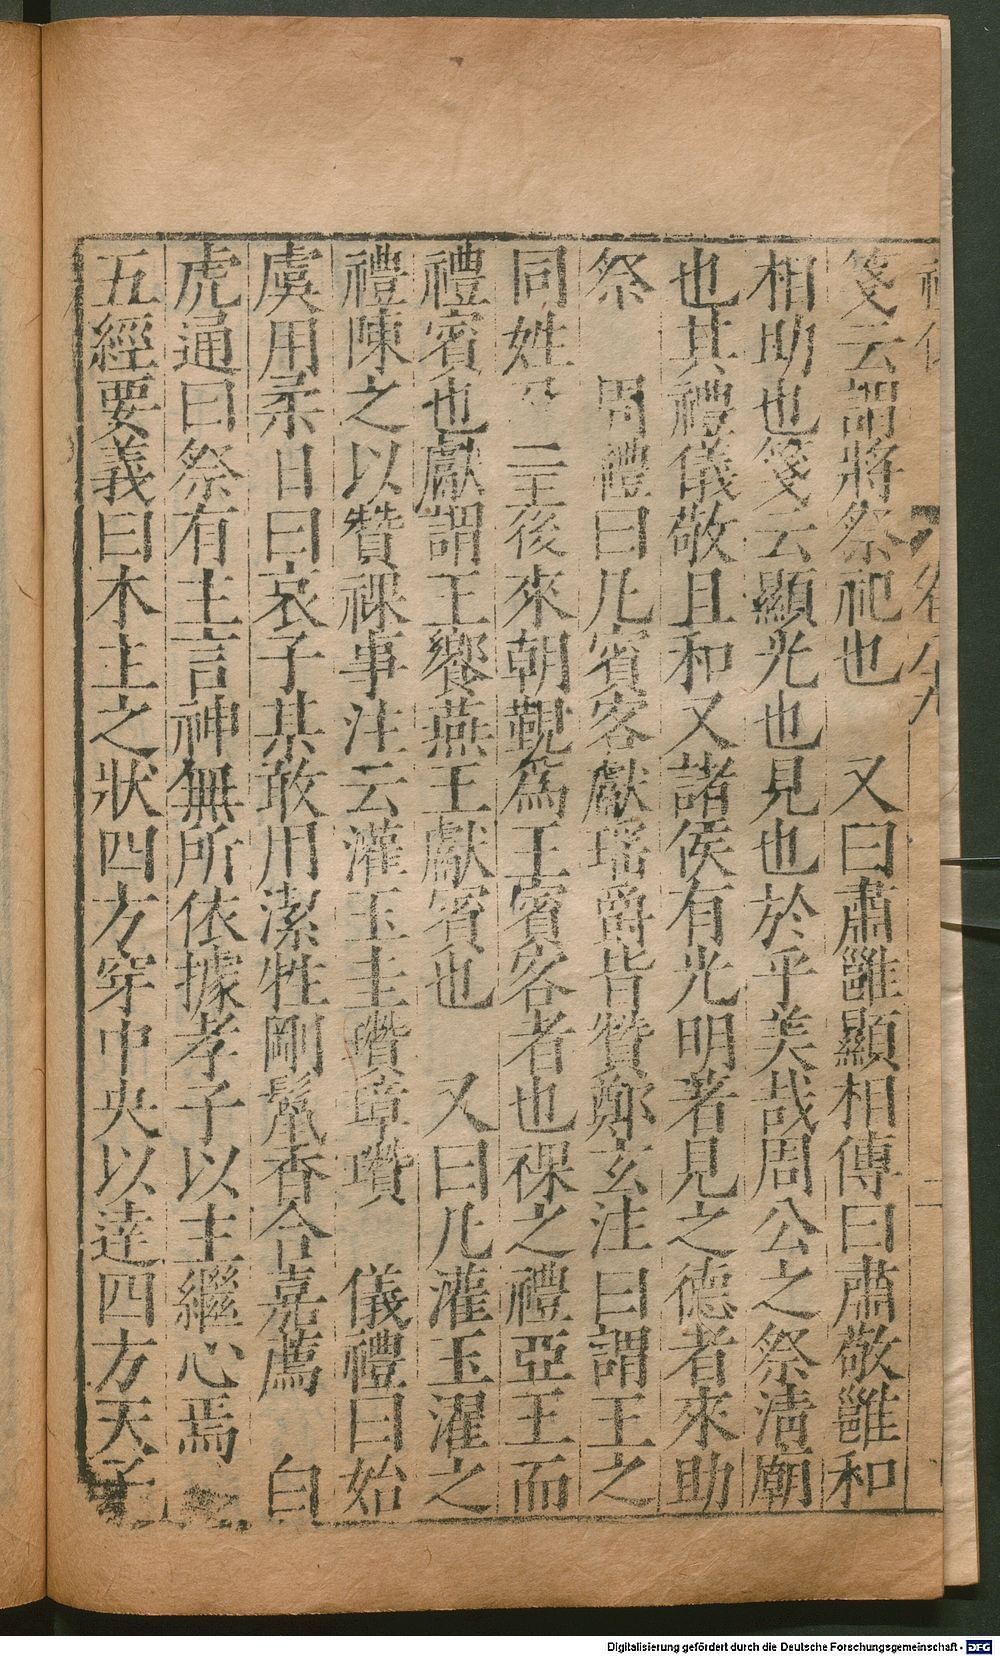 卷八九
二
箋云謂將祭祀也　又曰肅雝顯相傳曰肅敬雝和
相助也箋云顯光也見也於乎美哉周公之祭淸廟
也其禮儀敬且和又諸侯有光明著見之德者來助
祭　周禮曰凡賓客獻瑤爵皆贊鄭玄注曰謂王之
同姓及二王後來朝覲爲王賓客者也祼之禮亞王而
禮賓也獻謂王饗燕王獻賓也　又曰凡灌玉濯之
禮陳之以贊祼事注云灌玉圭瓚璋瓚　儀禮曰始
虞用柔日曰哀子某敢用潔牲剛鬛香合嘉薦　白
虎通曰祭有主言神無所依據孝子以主繼心焉
五經要義曰木主之狀四方穿中央以達四方天子
Digitalisierung gefördert durch die Deutsche Forschungsgemeinschaft - DFG